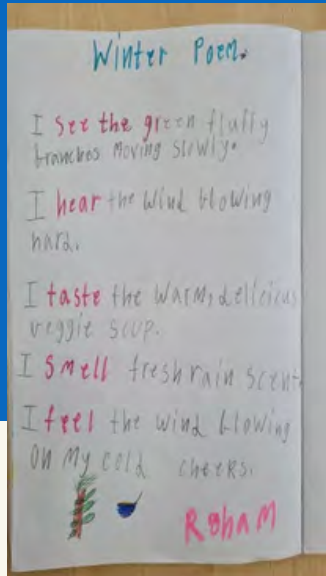 Winter Poem.
I see the green fluffy
branches moving slowly.
I hear the wind blowing
hard.
I taste the warm, delleicius
veggie soup.
I smell fresh rain scent
I feel the wind blowing
on my cold cheeks.
Roham